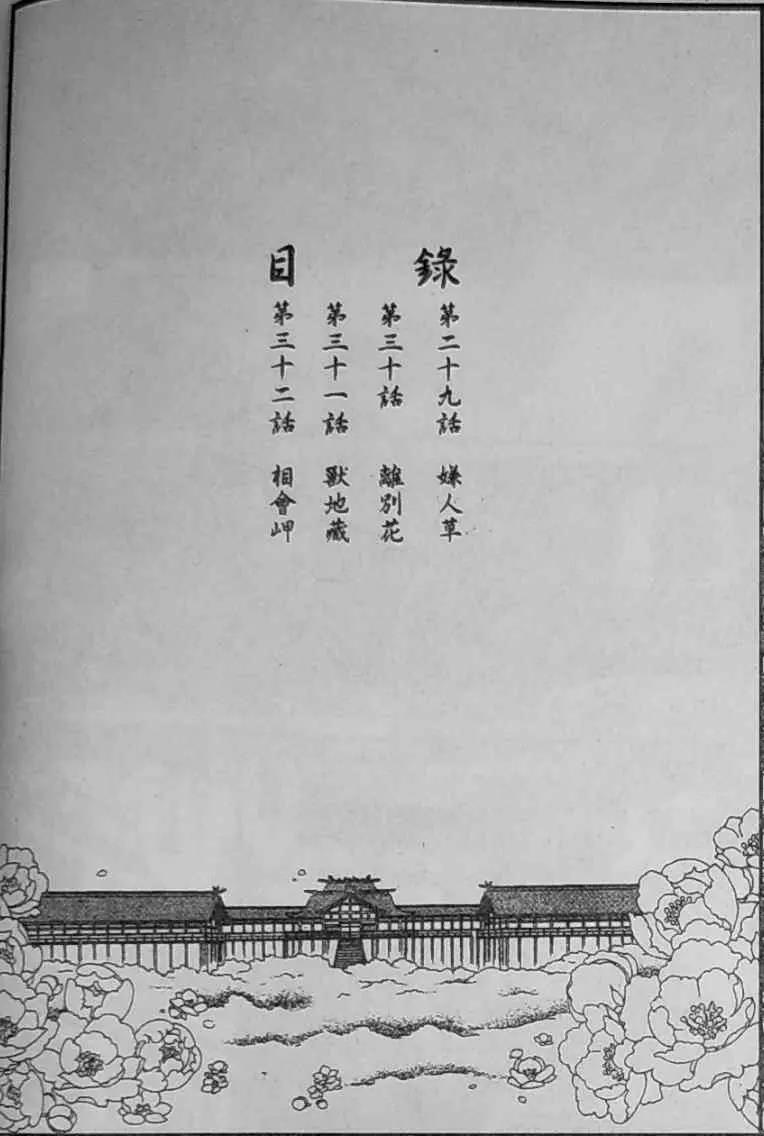 目錄
第二十九話 嫌人草
第三十話 離別花
第三十一話 獸地藏
第三十二話 相會岬